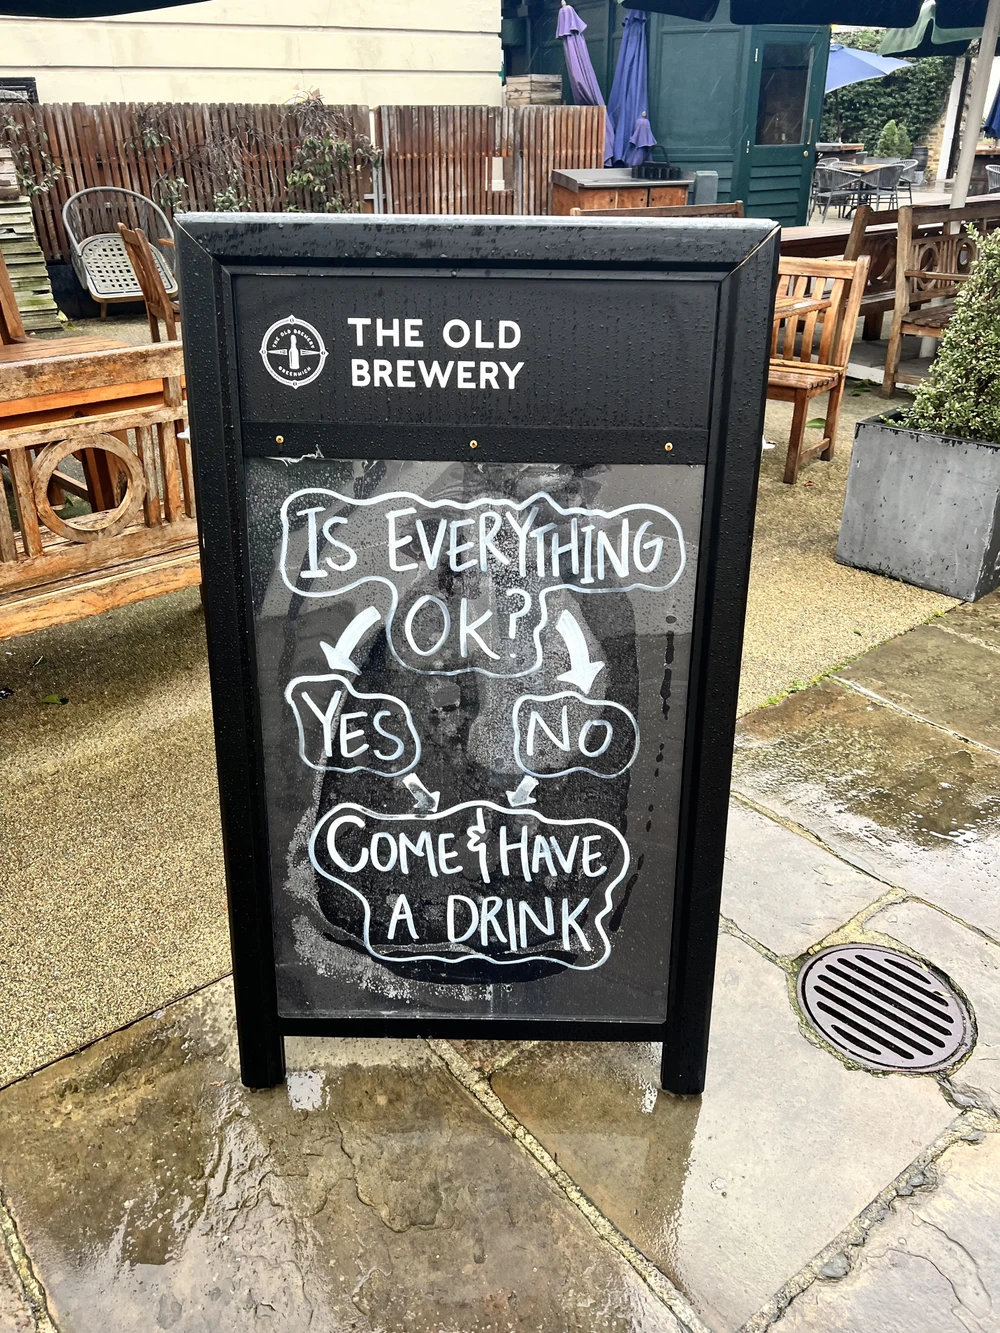 THE OLD BREWERY
GREENWICH
THE OLD
BREWERY
IS EVERYTHING
OK?
YES
NO
COME & HAVE
A DRINK